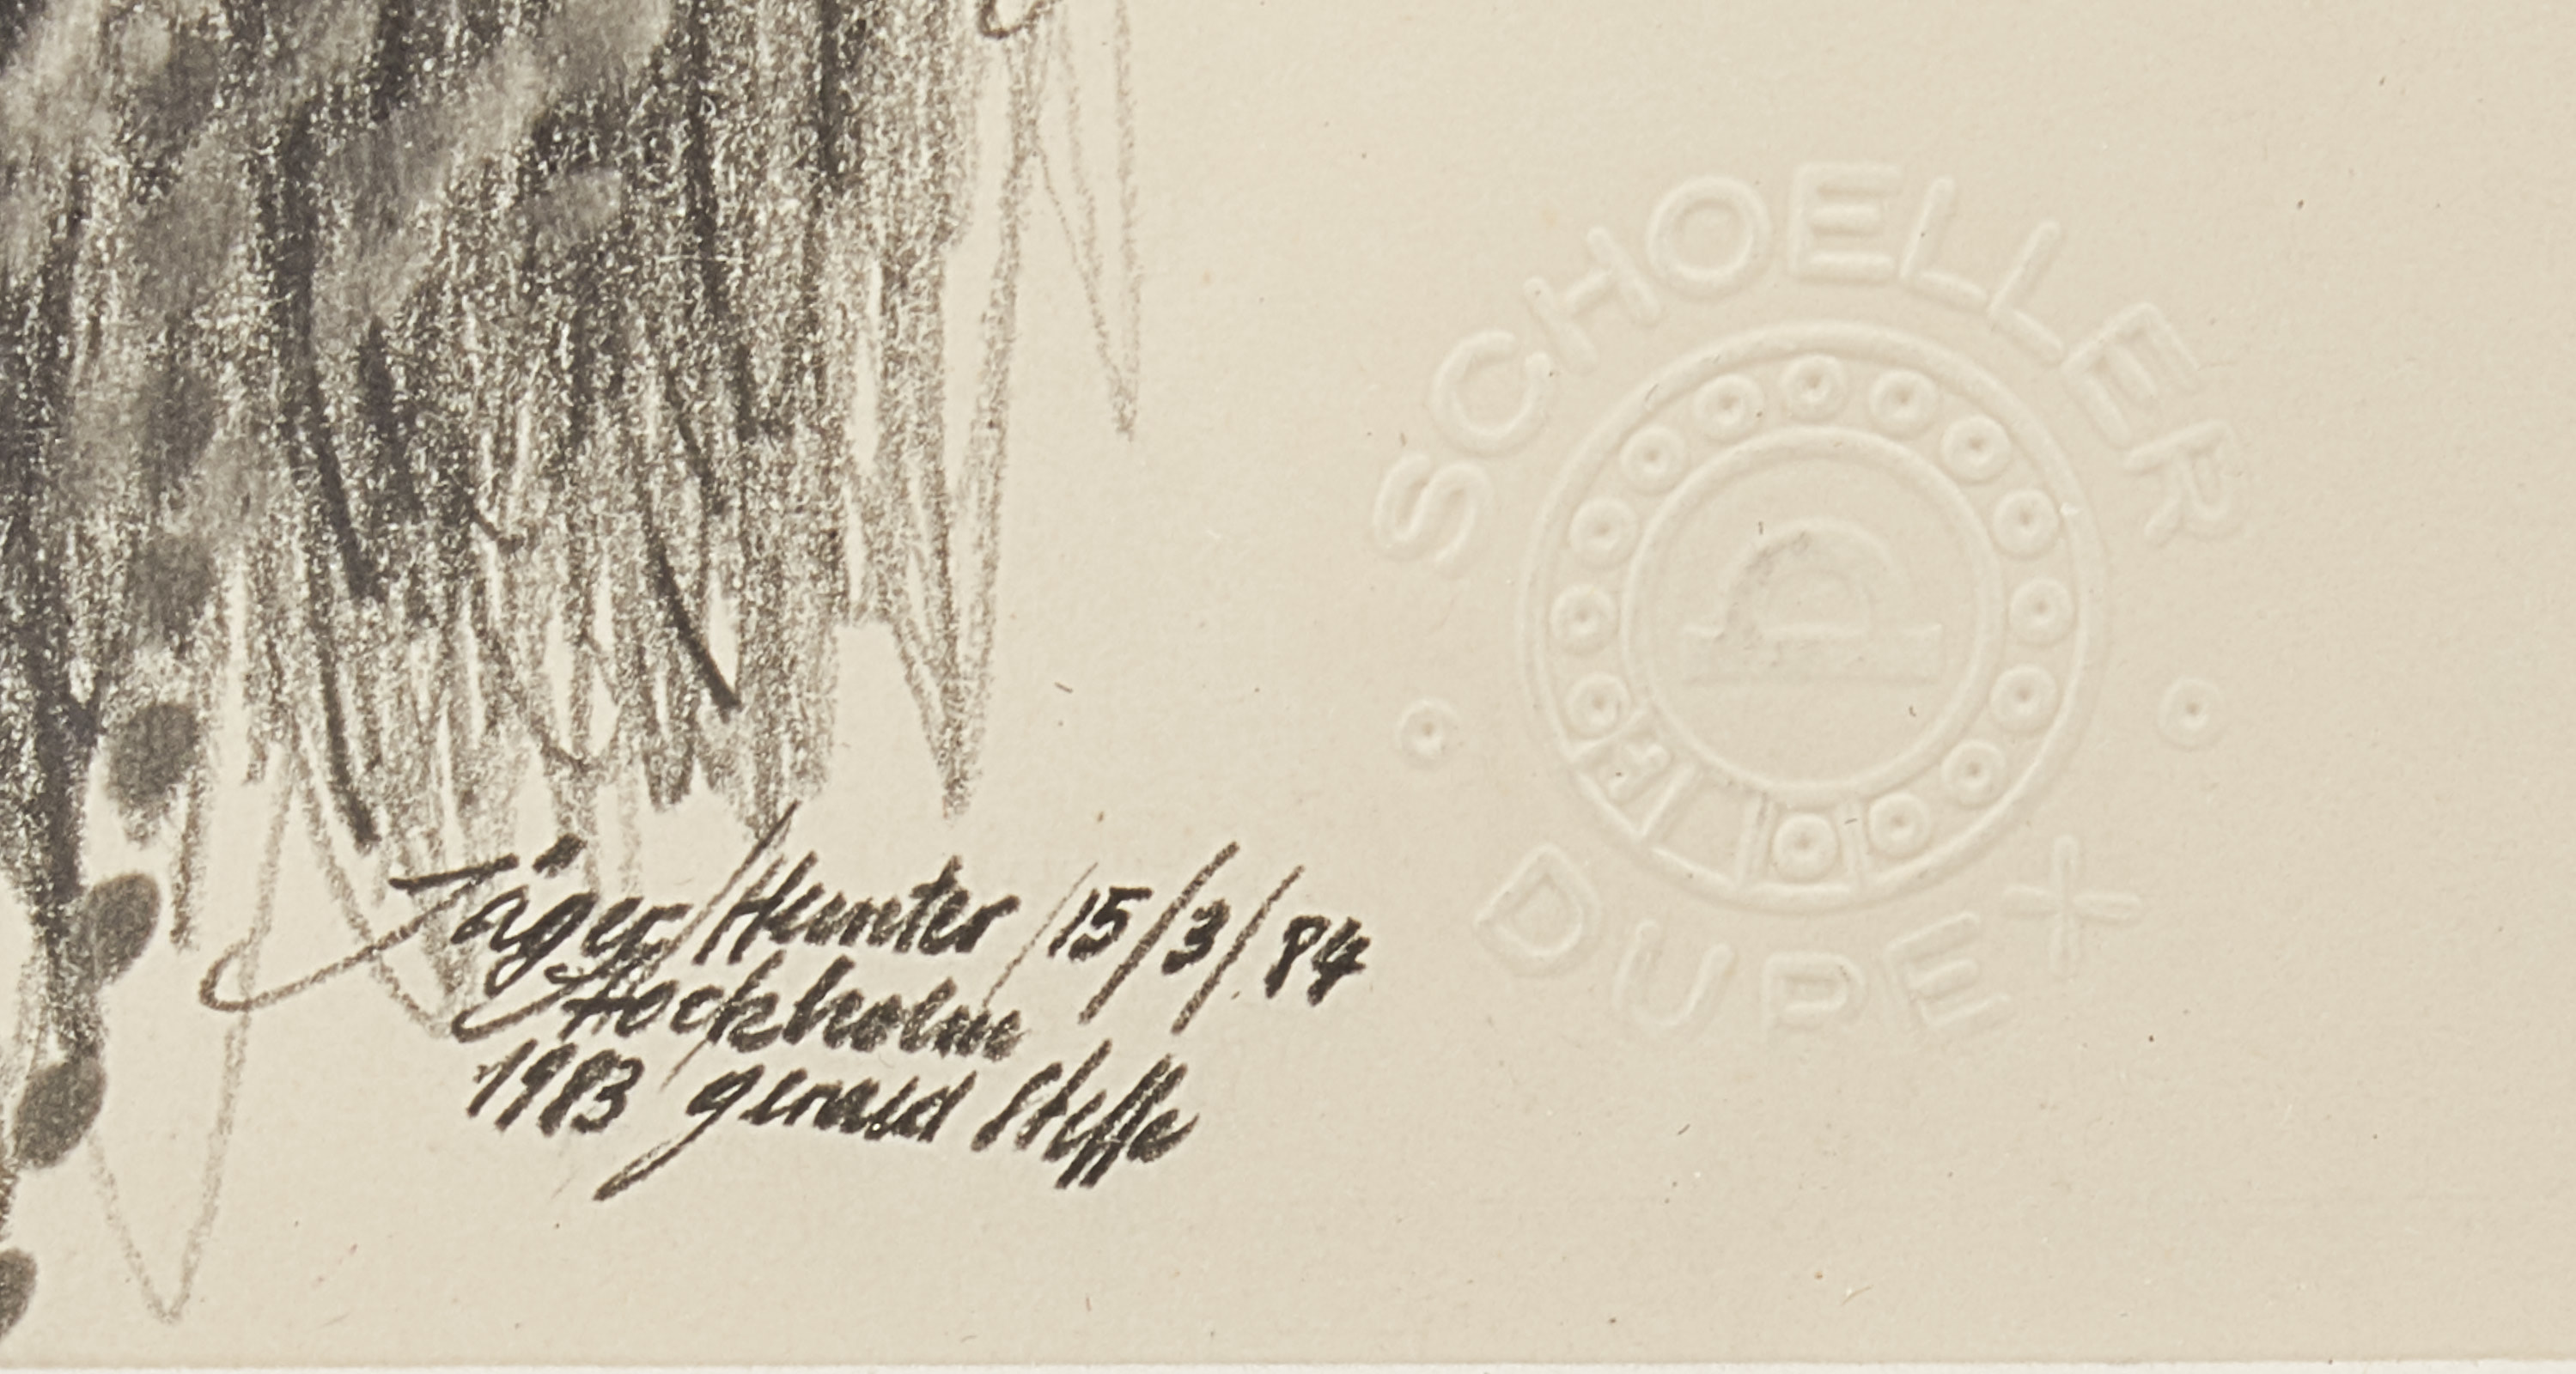 Jäger/Hunter/15/3/84
Stockholm
1983 gerald Steffe
SCHOELLER
D
DUREX